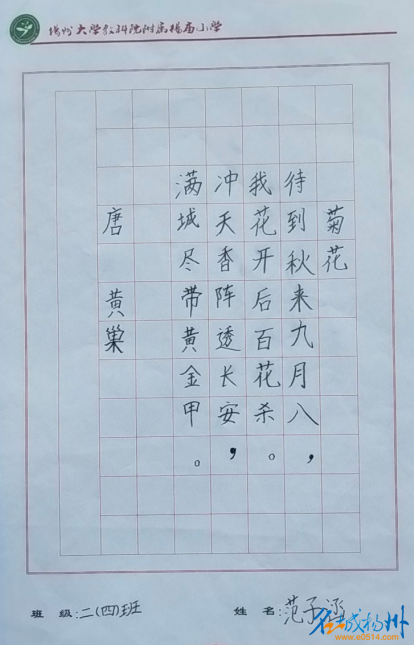 扬州大学教科院附属杨庙小学
菊花
待到秋来九月八，
我花开后百花杀。
冲天香阵透长安，
满城尽带黄金甲。
唐 黄巢
班 级:二(四)班
姓 名:范予涵
在成扬州
www.e0514.com